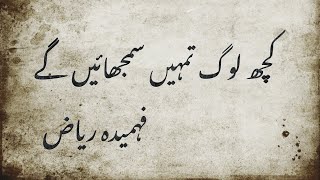 کچھ لوگ تمہیں سمجھائیں گے
فہمیدہ ریاض